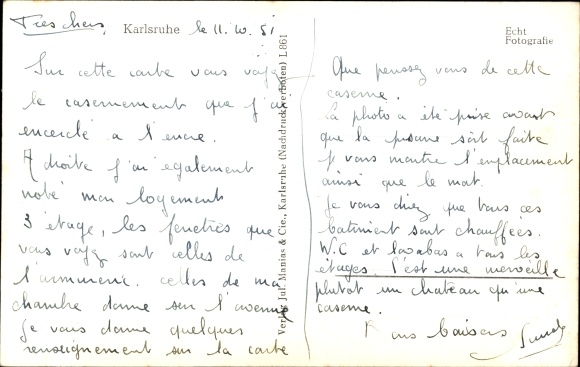 Très chers, Karlsruhe le 11.10.51
Sur cette carte vous voyez
le casernement que j'ai
encerclé a l'encre.
A droite j'ai egalement
noté mon logement
3 étage, les fenetres que
vous voyez sont celles de
l'armurerie. celles de ma
chambre donne sur l'avenue
Je vous donne quelques
renseignement sur la carte
Verlag Jul. Manias & Cie., Karlsruhe (Nachdruck verboten) L861
Echt
Fotografie
Que pensez vous de cette
caserne.
La photo a été prise avant
que la piscine soit faite
je vous montre l'emplacement
ainsi que le mat.
Je vous direz que tous ces
batiment sont chauffées.
W.C et lavabas a tous les
étages. C'est une merveille
plutot un chateau qu'une
caserne.
baisers